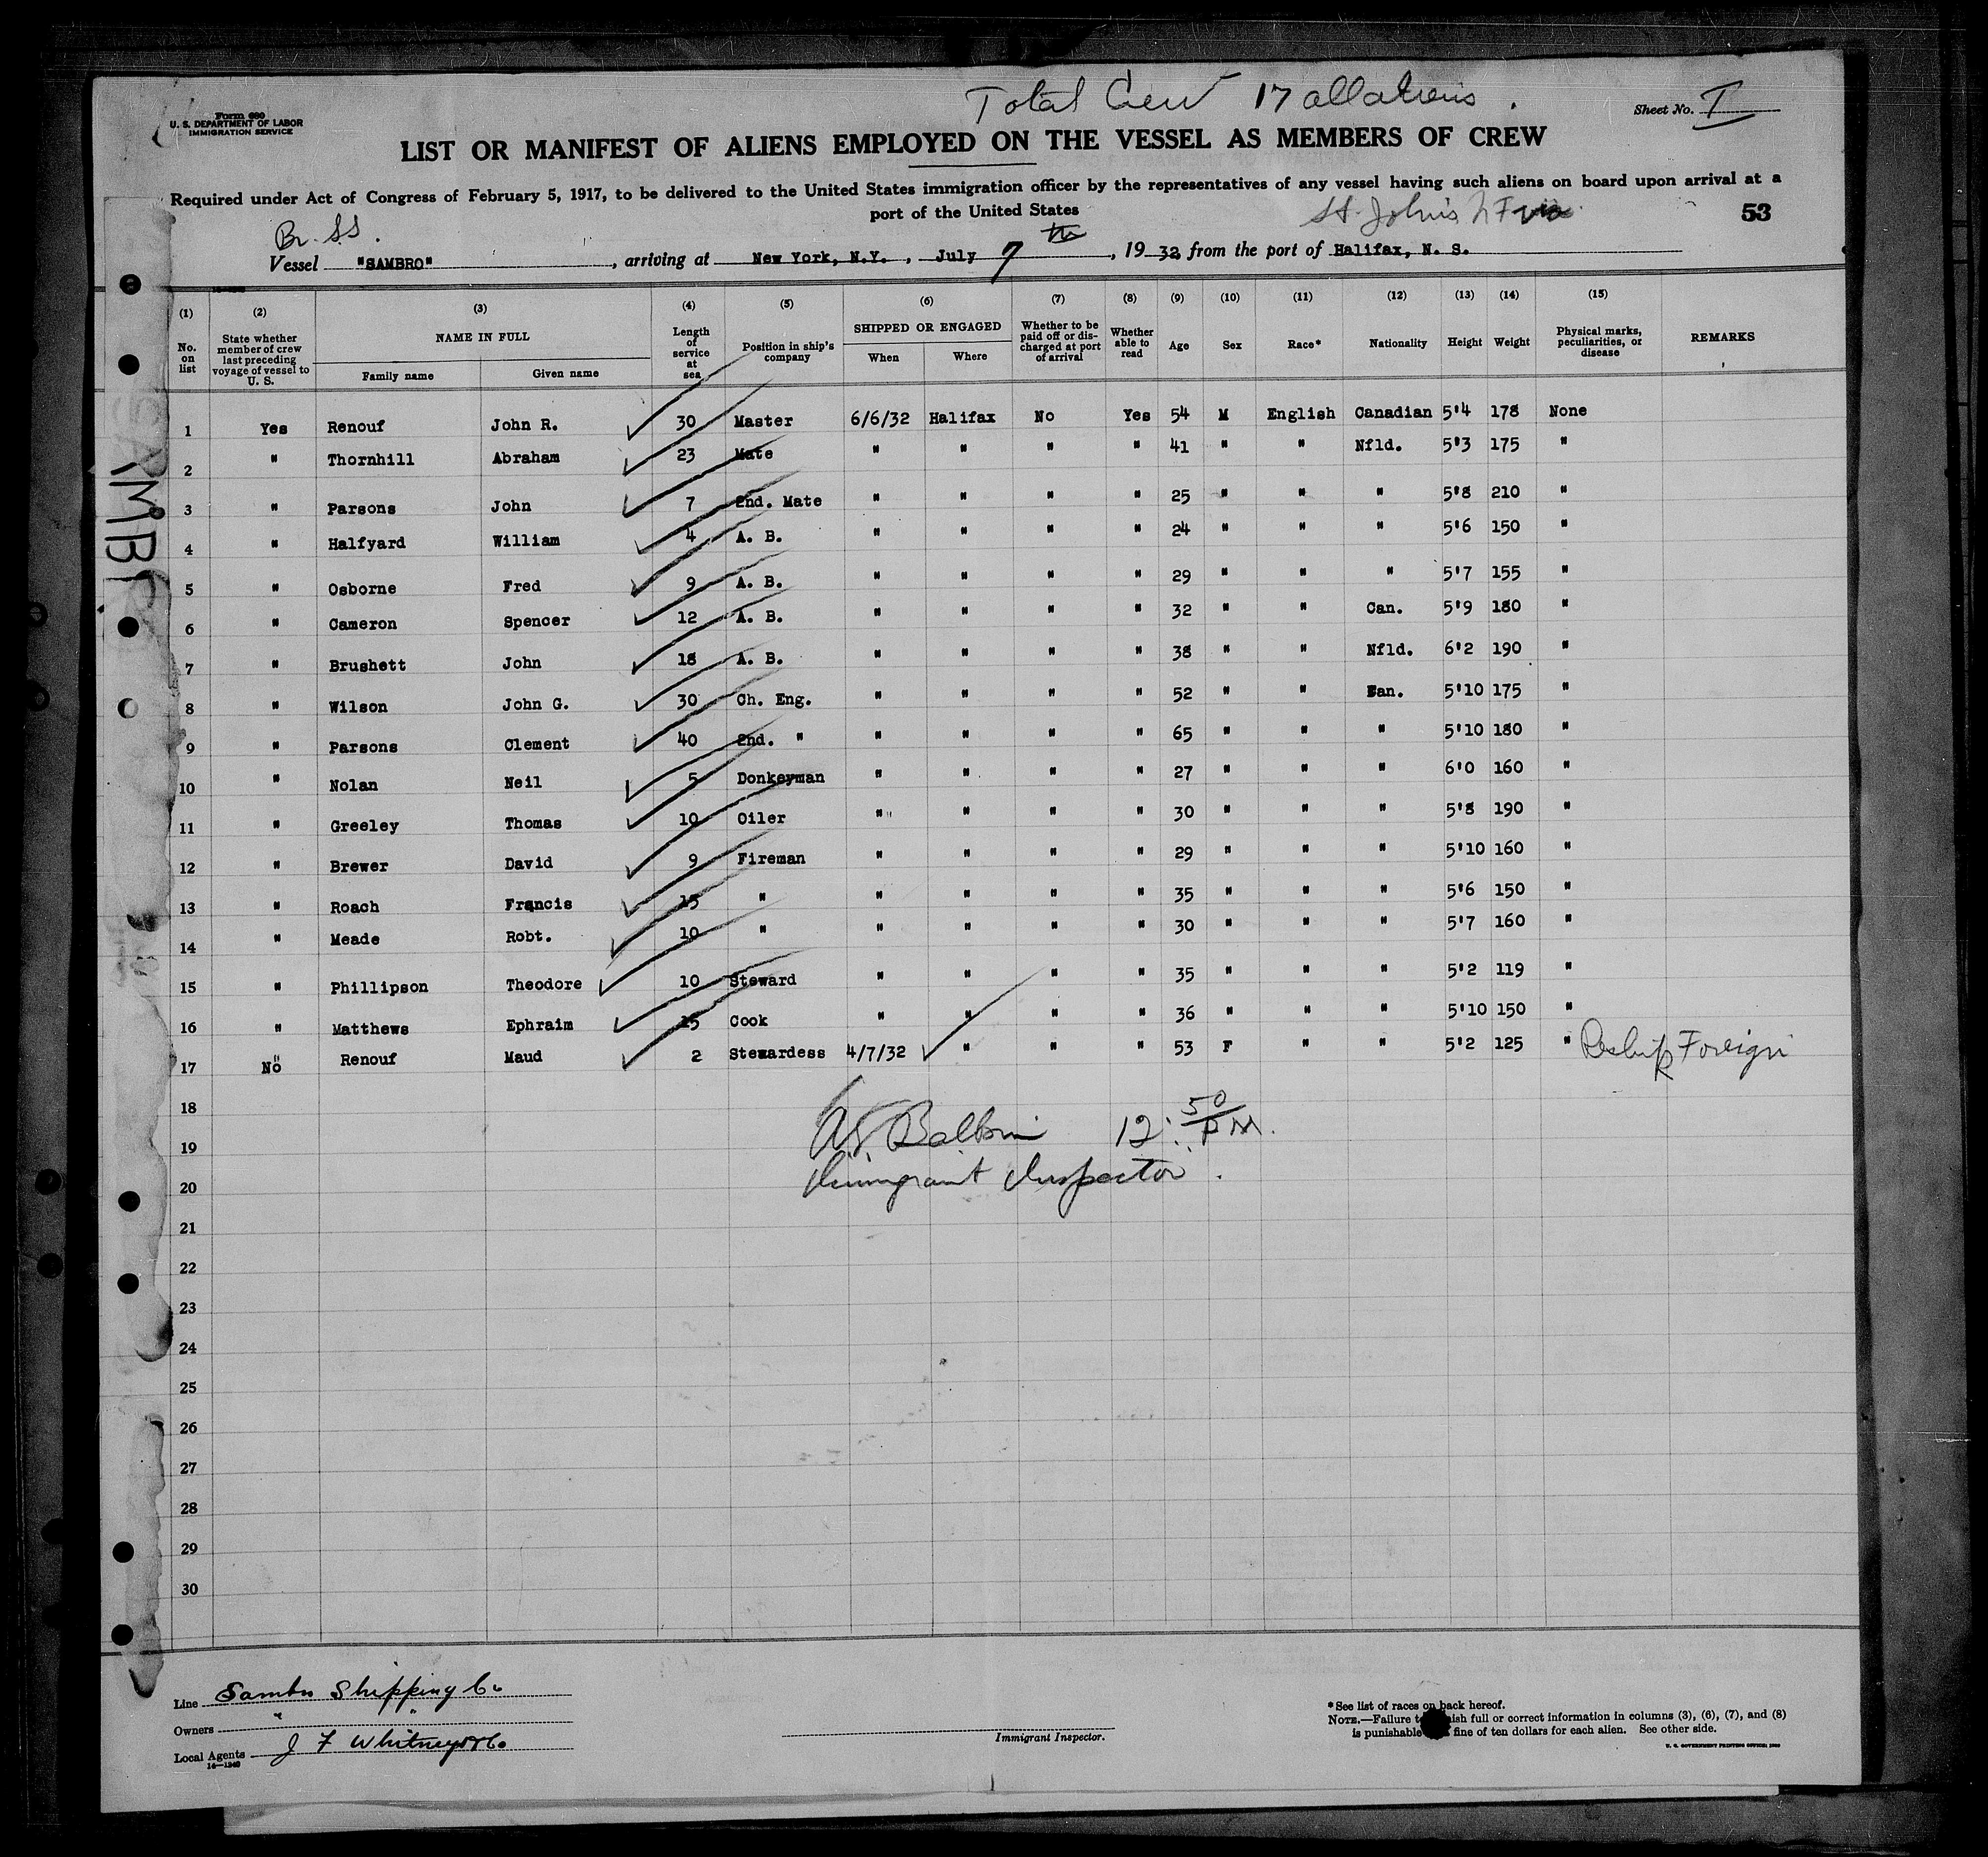 Total Crew 17 all aliens.
Form 680
U. S. DEPARTMENT OF LABOR
IMMIGRATION SERVICE
Sheet No. I
LIST OR MANIFEST OF ALIENS EMPLOYED ON THE VESSEL AS MEMBERS OF CREW
Required under Act of Congress of February 5, 1917, to be delivered to the United States immigration officer by the representatives of any vessel having such aliens on board upon arrival at a
port of the United States
St. John's
53
Br. SS.
Vessel "SAMBRO", arriving at New York, N.Y., July 7th, 1932 from the port of Halifax, N. S.
(1) (2) (3) (4) (5) (6) (7) (8) (9) (10) (11) (12) (13) (14) (15)
No. on list State whether member of crew last preceding voyage of vessel to U. S. NAME IN FULL Family name Given name Length of service at sea Position in ship's company SHIPPED OR ENGAGED When Where Whether to be paid off or discharged at port of arrival Whether able to read Age Sex Race* Nationality Height Weight Physical marks, peculiarities, or disease REMARKS
1 Yes Renouf John R. 30 Master 6/6/32 Halifax No Yes 54 M English Canadian 5'4 178 None
2 " Thornhill Abraham 23 Mate " " " " 41 " " Nfld. 5'3 175 "
3 " Parsons John 7 2nd. Mate " " " " 25 " " " 5'8 210 "
4 " Halfyard William 4 A. B. " " " " 24 " " " 5'6 150 "
5 " Osborne Fred 9 A. B. " " " " 29 " " " 5'7 155 "
6 " Cameron Spencer 12 A. B. " " " " 32 " " Can. 5'9 180 "
7 " Brushett John 18 A. B. " " " " 38 " " Nfld. 6'2 190 "
8 " Wilson John G. 30 Ch. Eng. " " " " 52 " " Can. 5'10 175 "
9 " Parsons Clement 40 2nd. " " " " " 65 " " " 5'10 180 "
10 " Nolan Neil 5 Donkeyman " " " " 27 " " " 6'0 160 "
11 " Greeley Thomas 10 Oiler " " " " 30 " " " 5'8 190 "
12 " Brewer David 9 Fireman " " " " 29 " " " 5'10 160 "
13 " Roach Francis 15 " " " " " 35 " " " 5'6 150 "
14 " Meade Robt. 10 " " " " " 30 " " " 5'7 160 "
15 " Phillipson Theodore 10 Steward " " " " 35 " " " 5'2 119 "
16 " Matthews Ephraim 15 Cook " " " " 36 " " " 5'10 150 "
17 No Renouf Maud 2 Stewardess 4/7/32 " " " 53 F " " 5'2 125 " Reship Foreign
18
19
20
21
22
23
24
25
26
27
28
29
30
12:50 PM.
Immigrant Inspector.
Line Sambro Shipping Co
Owners " "
Local Agents J F Whitney & Co.
14—1240
Immigrant Inspector.
*See list of races on back hereof.
NOTE.—Failure to furnish full or correct information in columns (3), (6), (7), and (8)
is punishable fine of ten dollars for each alien. See other side.
SAMBR